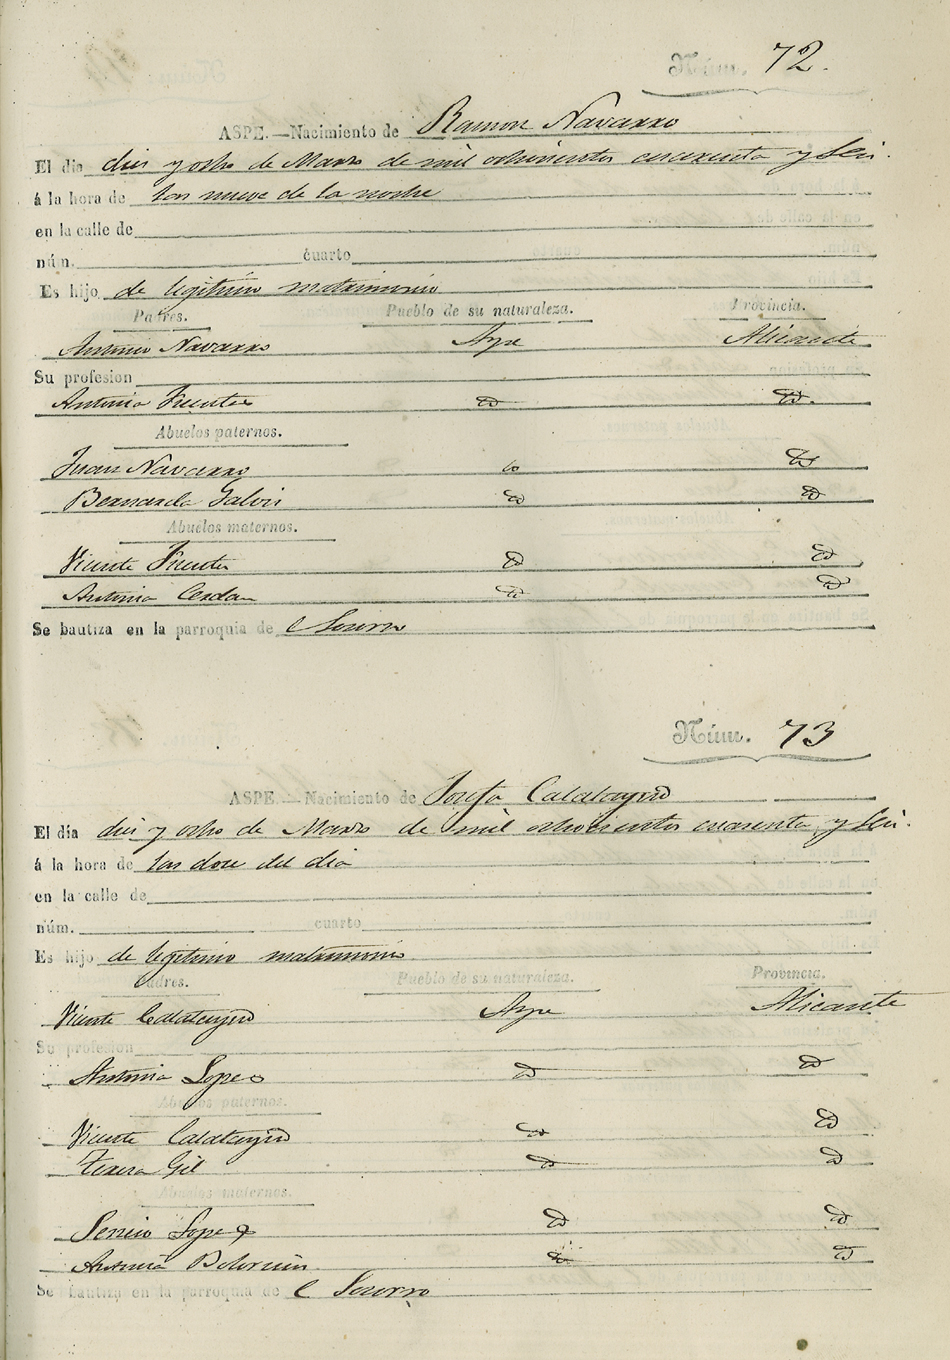 Núm. 72.
ASPE.—Nacimiento de Ramon Navarro
El dia diez y ocho de Marzo de mil ochocientos cuarenta y seis.
á la hora de las nueve de la noche
en la calle de
núm. cuarto
Es hijo de legitimo matrimonio
Padres. Pueblo de su naturaleza. Provincia.
Antonio Navarro Aspe Alicante
Su profesion
Antonia Fuentes id id.
Abuelos paternos.
Juan Navarro id id
Bernarda Galvis id id
Abuelos maternos.
Vicente Fuentes id id
Antonia Cerdan id id
Se bautiza en la parroquia de l Socorro
Núm. 73
ASPE.—Nacimiento de Josefa Calatayud
El día diez y ocho de Marzo de mil ochocientos cuarenta y seis.
á la hora de las doce del dia
en la calle de
núm. cuarto
Es hijo de legitimo matrimonio.
Padres. Pueblo de su naturaleza. Provincia.
Vicente Calatayud Aspe Alicante
Su profesion
Antonia Lopez id id
Abuelos paternos.
Vicente Calatayud id id
Teresa Gil id id
Abuelos maternos.
Lopez id id
Antonia id id
Se bautiza en la parroquia de l Socorro